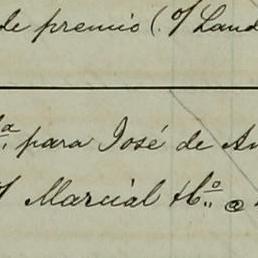 de premio (. o/ Land
ª para José de An
o/ Marcial Hº @